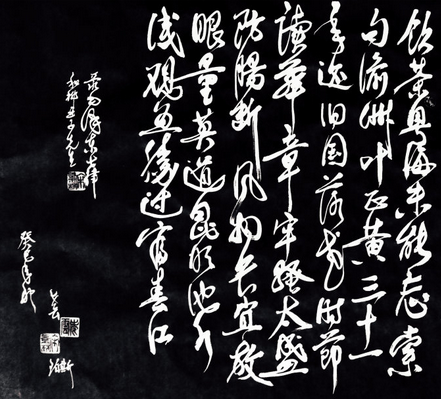 饮茶粤海未能忘索
句渝州叶正黄三十一
年还旧国落花时节
读华章牢骚太盛
防肠断风物长宜放
眼量莫道昆明池水
浅观鱼胜过富春江
毛泽东七律
和柳亚子先生
癸巳年